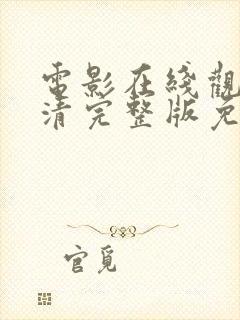 電影在綫觀
清完整版免
官覓